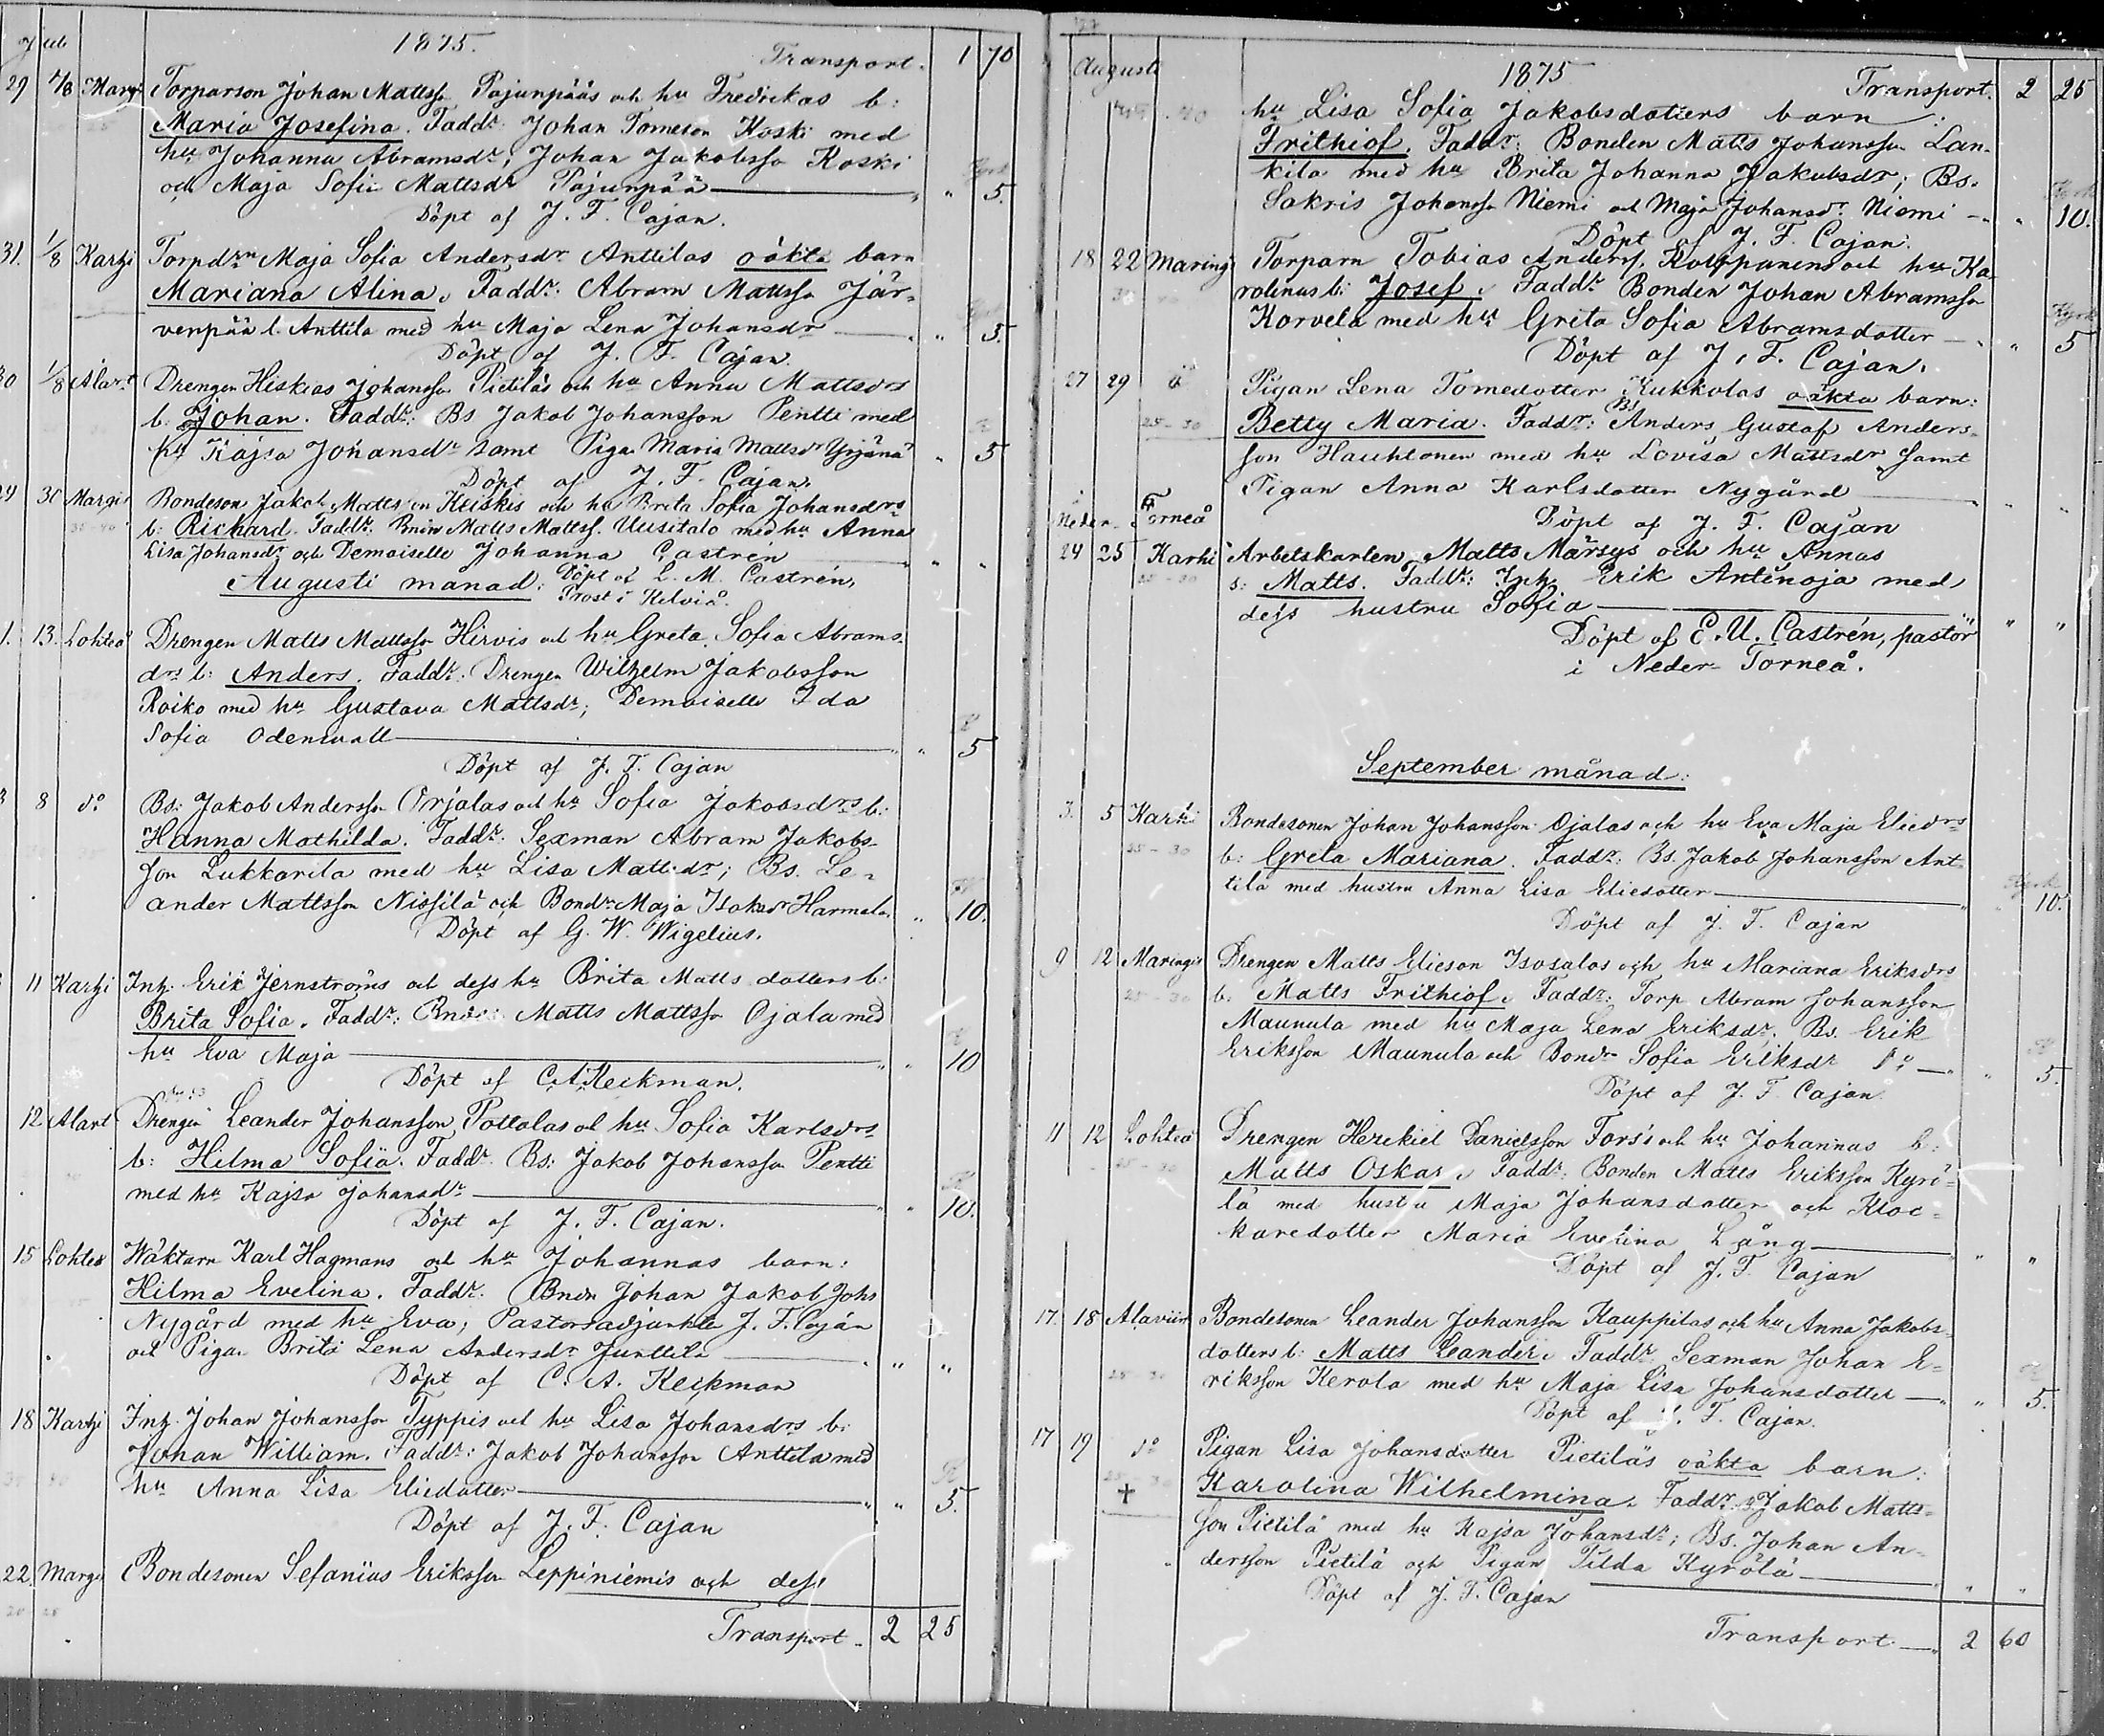 Juli
1875.
Transport. 1 70
29 1/8 Margi Torparson Johan Mattss. Pajunpääs och hu Fredrikas b:
Maria Josefina. Faddr: Johan Tomeson Koski med
hu Johanna Abramsdr; Johan Jakobsso Koski
och Maja Sofia Mattsdr Pajunpää — " 5.
Döpt af J. F. Cajan.
31. 1/8 Karhi Torpdrn Maja Sofia Andersdr Anttilas oäkta barn
Mariana Alina. Faddr: Abram Mattsso Jär-
venpää l. Anttila med hu Maja Lena Johansdr — " 5.
Döpt af J. F. Cajan.
30 1/8 Alart Drengen Hiskias Johansso Pietiläs och hu Anna Mattsdrs
b. Johan. Faddr: Bs Jakob Johansson Pentti med
hu Kajsa Johansdr samt Piga Maria Mattsdr Yrjänä " 5
Döpt af J. F. Cajan.
29 30 Margi Bondeson Jakob Mattsson Keiskis och hu Brita Sofia Johansdrs
35-40 b: Richard. Faddr: Bnden Matts Mattss. Uusitalo med hu Anna
Lisa Johansdr och Demoiselle Johanna Castren " "
Augusti månad: Döpt af L. M. Castrén,
Prost i Kelviå.
1. 13. Lohteå Drengen Matts Mattsso Hirvis och hu Greta Sofia Abrams-
drs b: Anders. Faddr. Drengen Wilhelm Jakobsson
Roiko med hu Gustava Mattsdr; Demoiselle Ida
Sofia Odenwall — " 5
Döpt af J. F. Cajan
8 do Bs: Jakob Andersso Orjalas och hu Sofia Jakobsdrs b:
Hanna Mathilda. Faddr: Sexman Abram Jakobs-
son Lukkarila med hu Lisa Mattsdr; Bs. Le-
ander Mattsson Nissilä och Bondr Maja Isaksdr Harmala. " 10.
Döpt af G. W. Wigelius.
11 Karhi Inh. Erik Jernströms och dess hu Brita Matts dotters b:
Brita Sofia. Faddr: Bnden Matts Mattsso Ojala med
hu Eva Maja — " 10
Döpt af C. A. Keckman.
12 Alart Drengen Leander Johansson Pottalas och hu Sofia Karlsdrs
b: Hilma Sofia. Faddr. Bs: Jakob Johansso Pentti
med hu Kajsa Johansdr — " 10.
Döpt af J. F. Cajan.
15 Lohteå Wäktarn Karl Hagmans och hu Johannas barn:
Hilma Evelina. Faddr. Bnden Johan Jakob Johs
Nygård med hu Eva; Pastorsadjunkte J. F. Cajan
och Pigan Brita Lena Andersdr Junttila — " "
Döpt af C. A. Keckman
18 Karhi Inh. Johan Johansso Typpis och hu Lisa Johansdrs b:
Johan William. Faddr: Jakob Johansson Anttila med
hu Anna Lisa Eliedotter — " 5.
Döpt af J. F. Cajan
22. Margi Bondesonen Sefanias Eriksson Leppiniemis och dess
Transport. 2 25
Augusti
1875
Transport. 2 25
hu Lisa Sofia Jakobsdotters barn:
Frithiof. Faddr: Bonden Matts Johansson Lan-
kila med hu Brita Johanna Jakobsdr; Bs.
Sakris Johansso Niemi och Maja Johansdr Niemi — " 10.
Döpt af J. F. Cajan.
18 22 Maringi Torparn Tobias Anderss. Korppinens och hu Ka-
rolinas b: Josef. Faddr Bonden Johan Abramsso
Korvela med hu Greta Sofia Abramsdotter — " 5
Döpt af J. F. Cajan.
27 29 do Pigan Lena Tomedotter Kukkolas oäkta barn:
25-30 Betty Maria. Faddr: Bs Anders Gustaf Anders-
son Hauhtonen med hu Lovisa Mattsdr samt
Pigan Anna Karlsdotter Nygård — " "
Döpt af J. F. Cajan
Neder-Torneå
24 25 Karhi Arbetskarlen Matts Märsys och hu Annas
25-30 s: Matts. Faddr: Inh. Erik Antinoja med
dess hustru Sofia — " "
Döpt af E. U. Castrén, pastor
i Neder-Torneå.
September månad:
3. 5 Karhi Bondesonen Johan Johansson Ojalas och hu Eva Maja Eliedrs
25-30 b: Greta Mariana. Faddr: Bs. Jakob Johansson Ant-
tila med hustru Anna Lisa Eliedotter — " 10.
Döpt af J. F. Cajan
9 12 Maringi Drengen Matts Elieson Isosalos och hu Mariana Eriksdrs
25-30 b. Matts Frithiof. Faddr: Torp Abram Johansson
Maunula med hu Maja Lena Eriksdr. Bs. Erik
Eriksson Maunula och Bondr Sofia Eriksdr do — " 5.
Döpt af J. F. Cajan.
11 12 Lohteå Drengen Hezekiel Danielsson Forss och hu Johannas b:
25-30 Matts Oskar. Faddr: Bonden Matts Eriksson Kyrö-
lä med hustru Maja Johansdotter och Kloc-
karedotter Maria Evelina Lång — " "
Döpt af J. F. Cajan
17. 18 Alaviir Bondesonen Leander Johansson Kauppilas och hu Anna Jakobs-
dotters b: Matts Leander. Faddr. Sexman Johan E-
25-30 riksson Kerola med hu Maja Lisa Johansdotter — " 5.
Döpt af J. F. Cajan.
17 19 do Pigan Lisa Johansdotter Pietiläs oäkta barn:
25-30 Karolina Wilhelmina. Faddr. Jakob Matts-
son Pietilä med hu Kajsa Johansdr; Bs. Johan An-
dersson Pietilä och Pigan Tilda Kyrölä — " "
Döpt af J. F. Cajan
Transport — 2 60